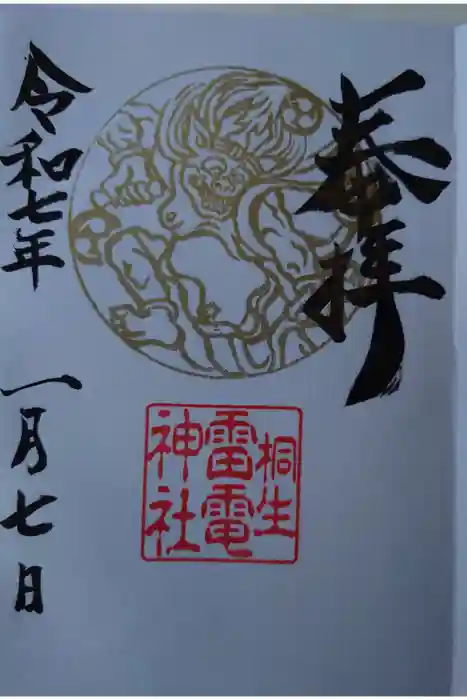 奉拝
桐生
雷電
神社
令和七年 一月七日